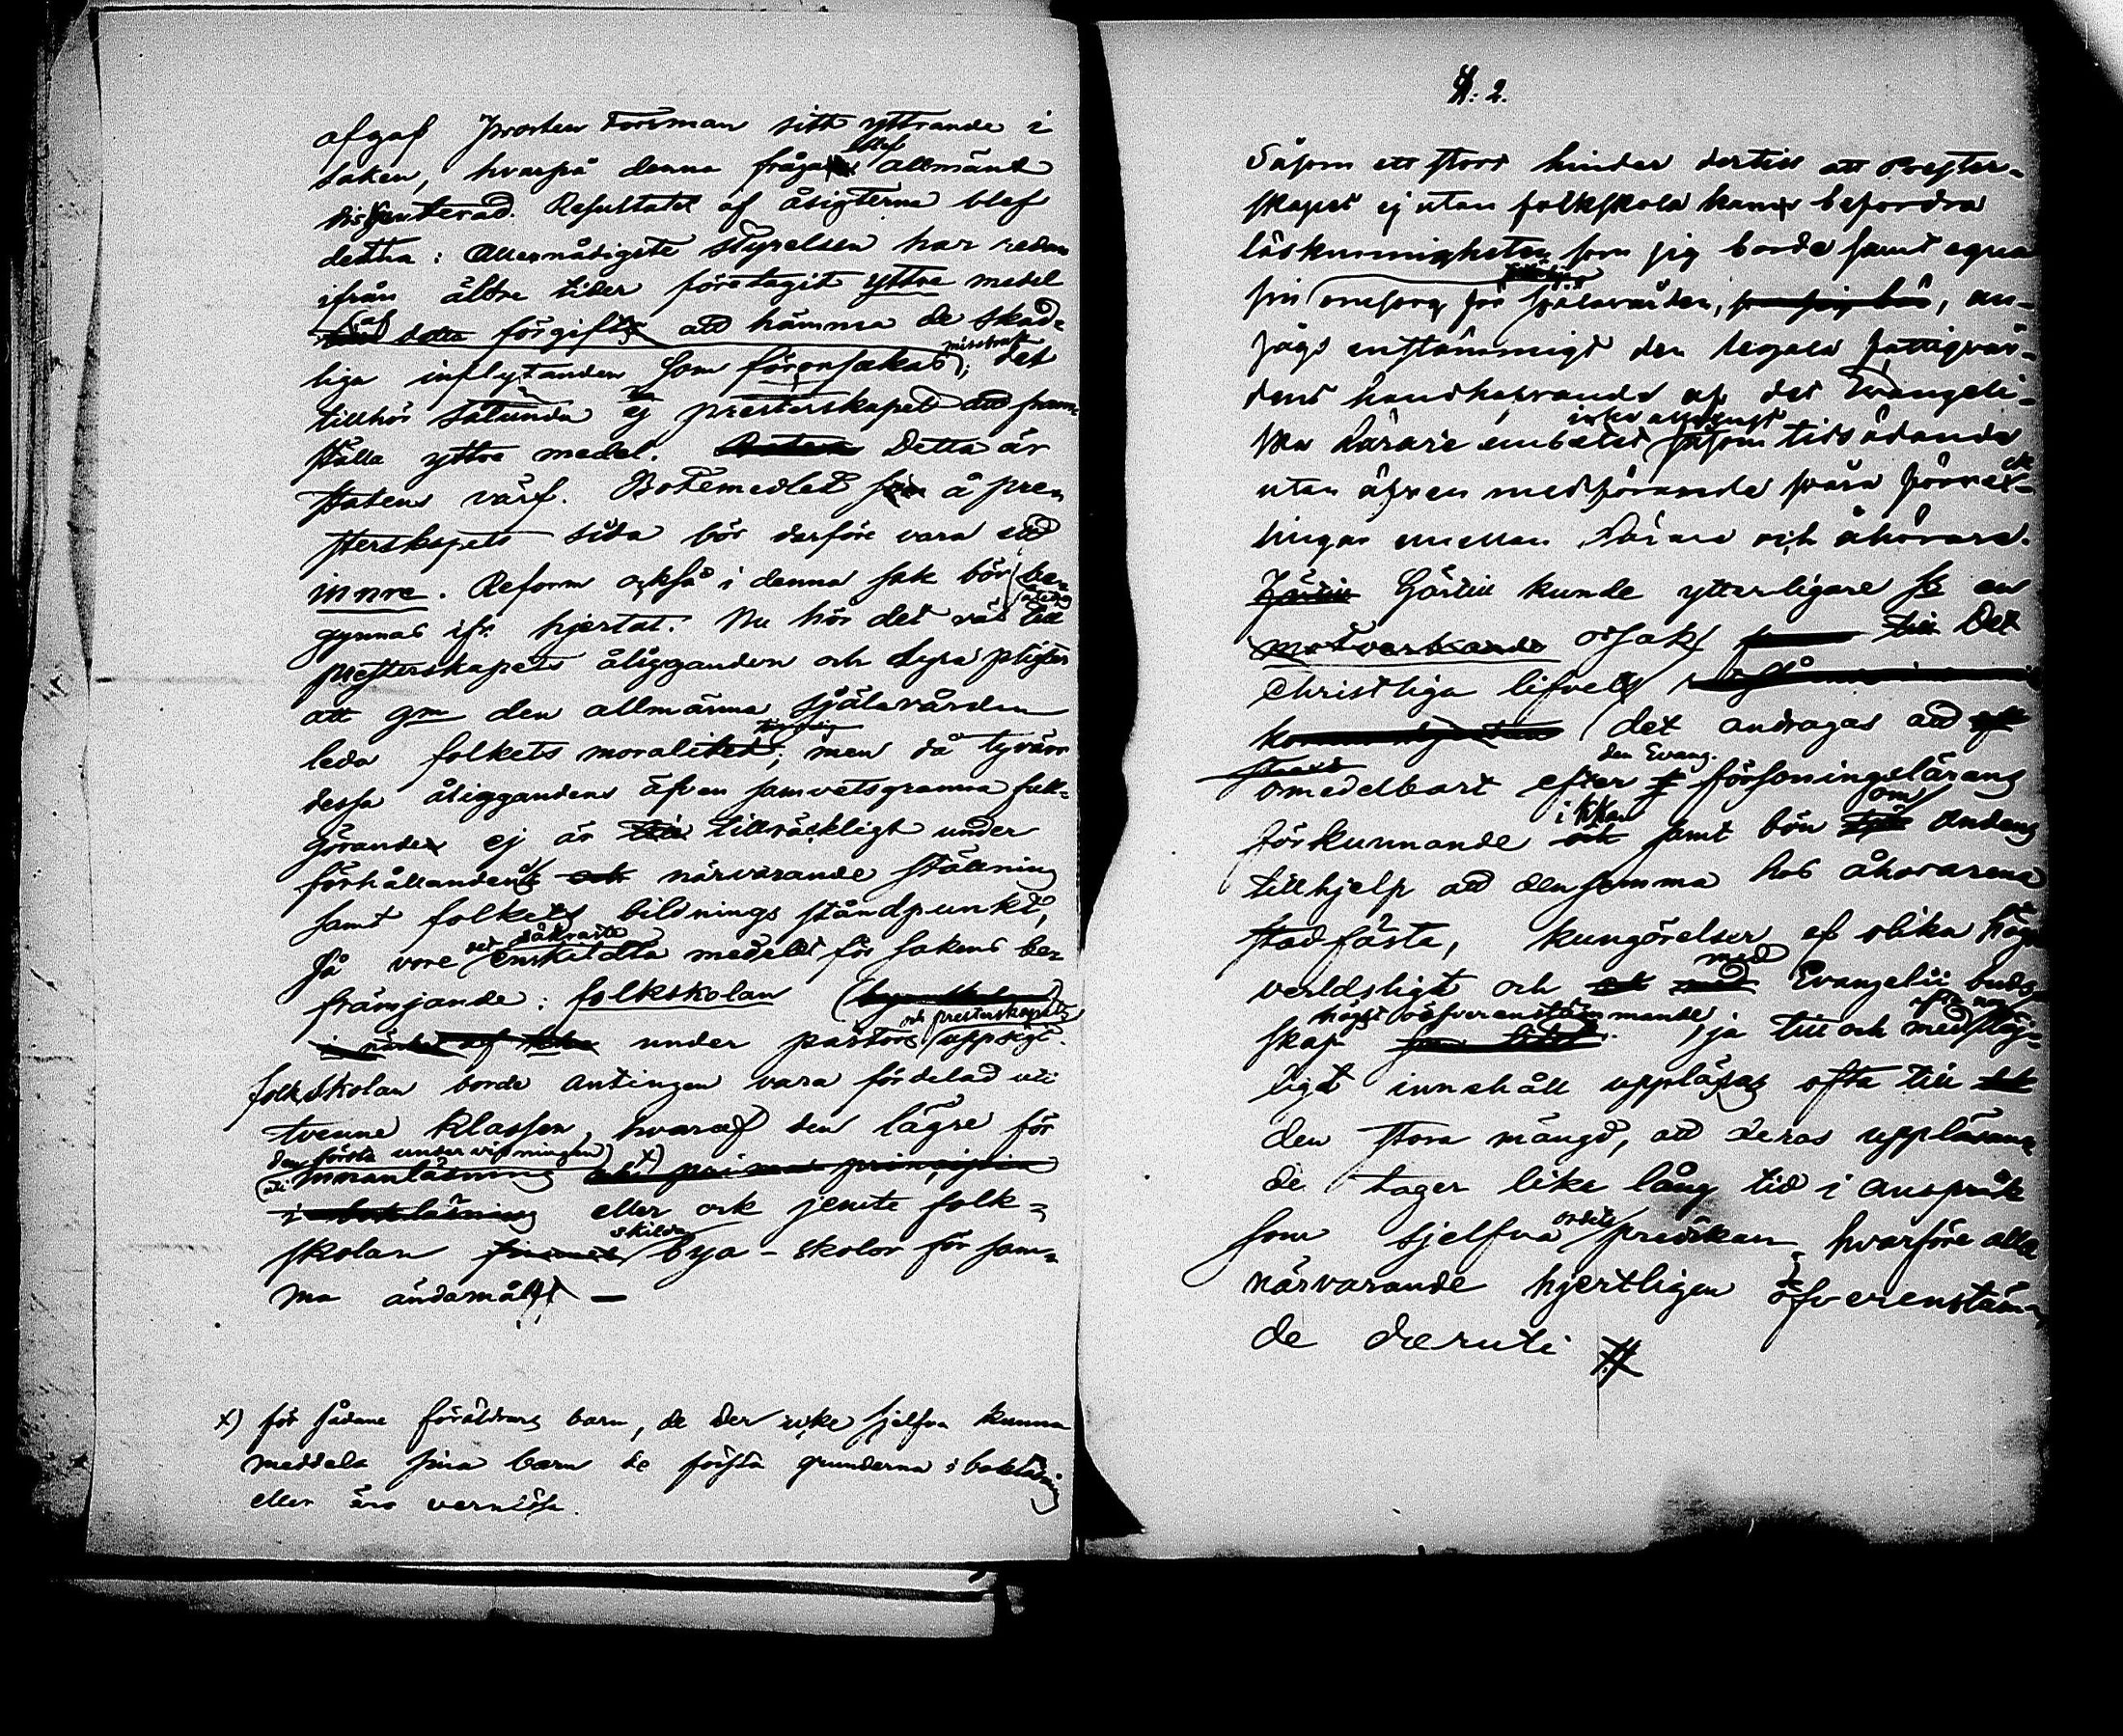 afgaf Prosten Forsman sitt yttrande i
saken, hvarpå denna fråga blef allmänt
diskenterad. Resultatet af åsigterna blef
detta: Allernådigste styrelsen har redan
ifrån äldre tider företagit yttre medel
detta förgift att hämma de skad-
liga inflytanden som förorsakas; det missbruk
tillhör sålunda ej presterskapet att fram-
ställa yttre medel. Detta är
statens värf. Botemedlet å pre-
sterskapets sida bör derföre vara ett
innre. Reform också i denna sak bör be-
gynnas ifr. hjertat. Nu hör det väl till
presterskapets åligganden och dyra pligter
att gm den allmänna själavården
leda folkets moralitet; men då tyvärr
dessa åliggandens äfven samvetsgranna full-
görande ej är tillräckligt under
förhållandenas närvarande ställning
samt folkets bildnings ståndpunkt,
så vore det säkraste enskildta medlet för sakens be-
främjande: folkskolan
under pastors och presterskapets uppsigt.
folkskolan borde antingen vara fördelad uti
tvenne klasser, hvaraf den lägre för
den första undervisningen x)
uti innanläsning och primar principia
i bokläsning eller ock jemte folk-
skolan skilda bya-skolor för sam-
ma ändamål —
x) för sådane föräldrars barn, de der icke sjelfva kunna
meddela sina barn de första grunderna i bokläsning
eller äro vernlösa.
§. 2.
Såsom ett stort hinder dertill att Prester-
skapet ej utan folkskola kan befordra
läskunnigheten som sig borde samt egna
sin omsorg för själavården, an-
sågs enstämmigt den legala fattigvår-
dens handhafvande af det Evangeli-
ska Lärare embetet icke allenast såsom tidsödande
utan äfven medförande svåra förveck-
lingar emellan Lärare och åhörare.
Härtill kunde ytterligare se en
motverkande orsak till Det
Christliga lifvets
det andragas att
straxt
omedelbart efter den Evang. försoningslärans
förkunnande i kkan samt bön om Andans
tillhjelp att densamma hos åhorarena
stadfästa, kungörelser af olika högst
verldsligt och med Evangelii buds-
skap högst oöfverenstämmande, ja till och med ofta nog löj-
ligt innehåll uppläsas ofta till
den stora mängd, att deras uppläsan-
de tager lika lång tid i anspråk
som sjelfva ordets predikan, hvarföre alla
närvarande hjertligen öfverenstäm-
de deruti #